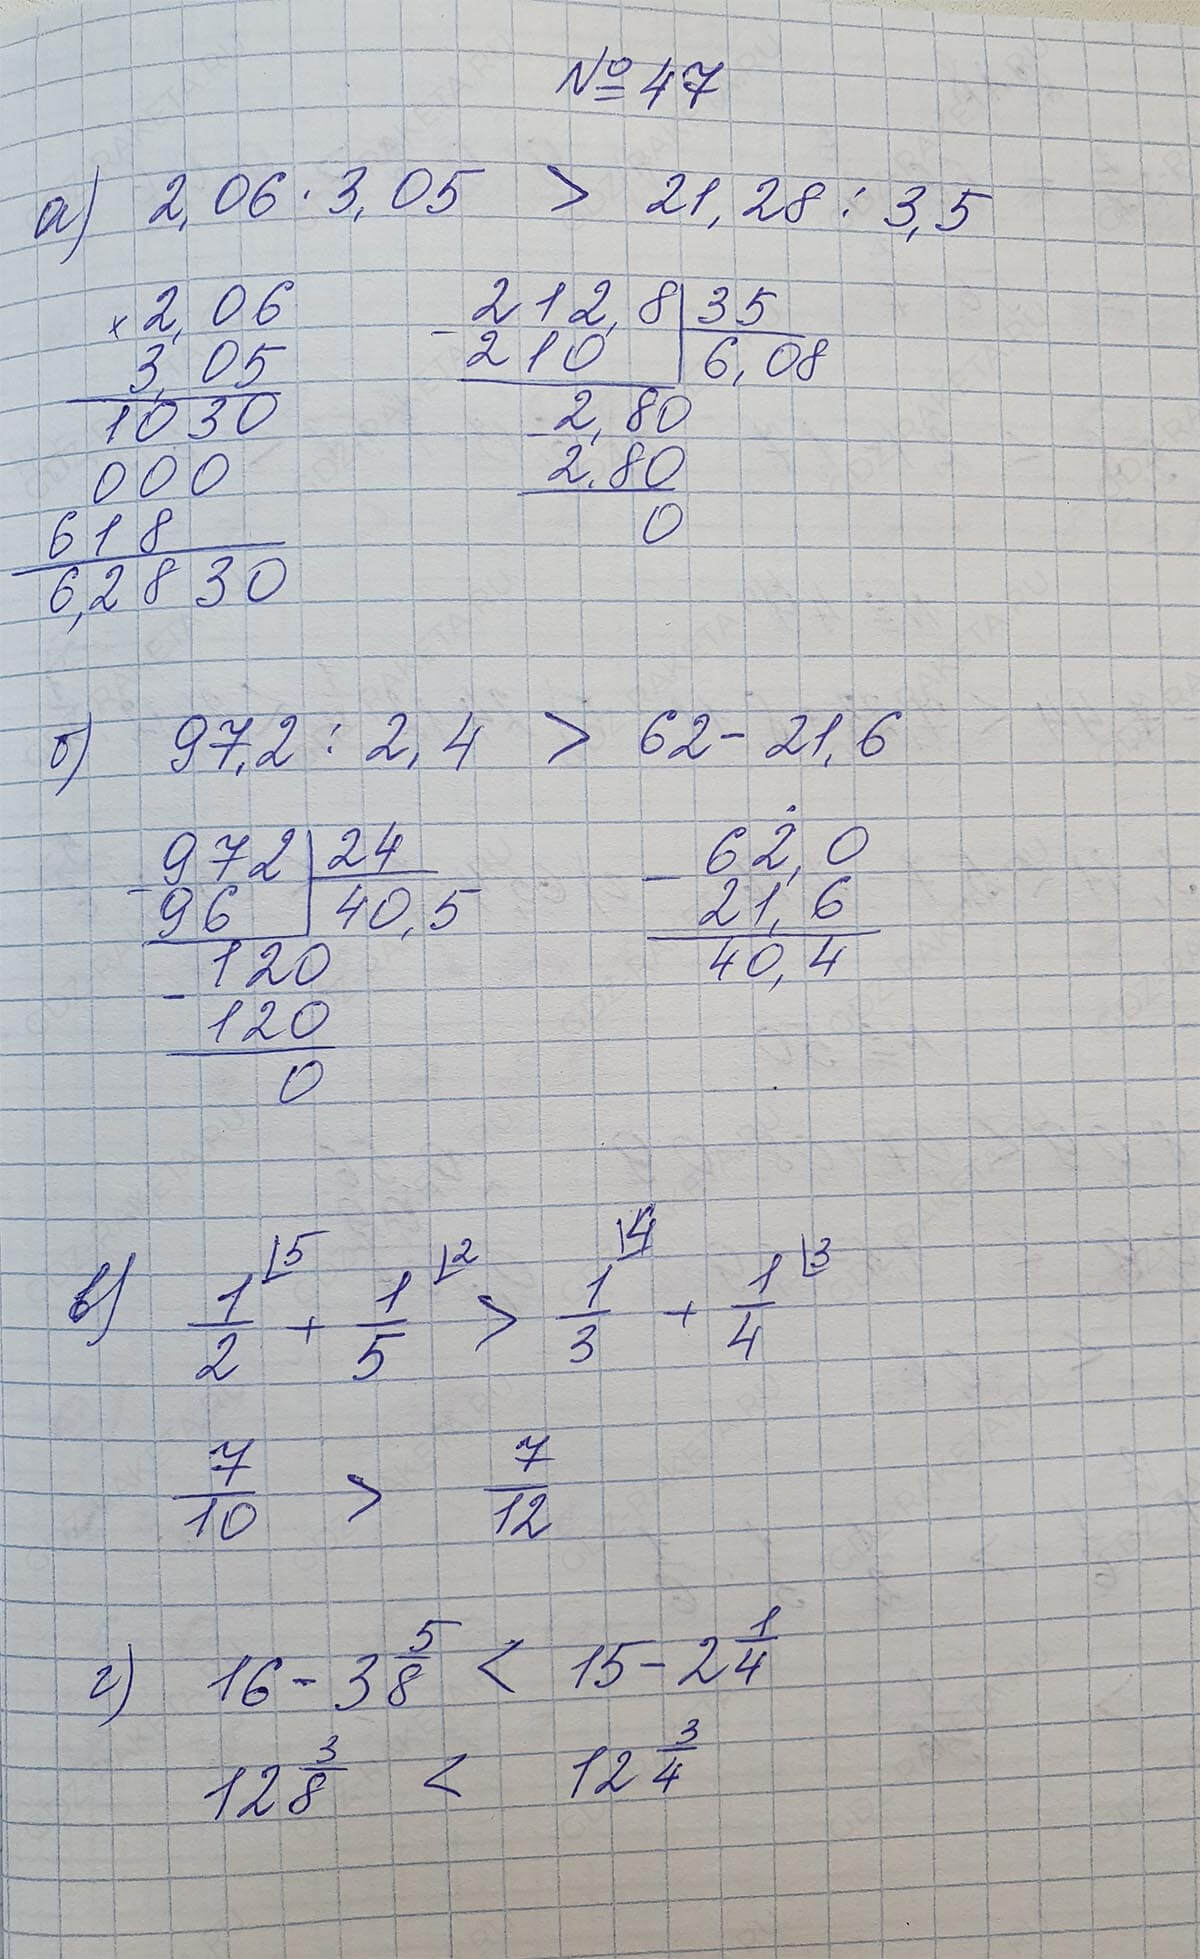 № 47
а) 2,06 · 3,05 > 21,28 : 3,5
× 2,06
3,05
1030
000
618
6,2830
- 212,8 | 35
210 | 6,08
- 2,80
2.80
0
б) 97,2 : 2,4 > 62 - 21,6
- 972 | 24
96 | 40,5
- 120
120
0
- 62,0
21,6
40,4
в) 1/2 ⌊5 + 1/5 ⌊2 > 1/3 ⌊4 + 1/4 ⌊3
7/10 > 7/12
г) 16 - 3 5/8 < 15 - 2 1/4
12 3/8 < 12 3/4